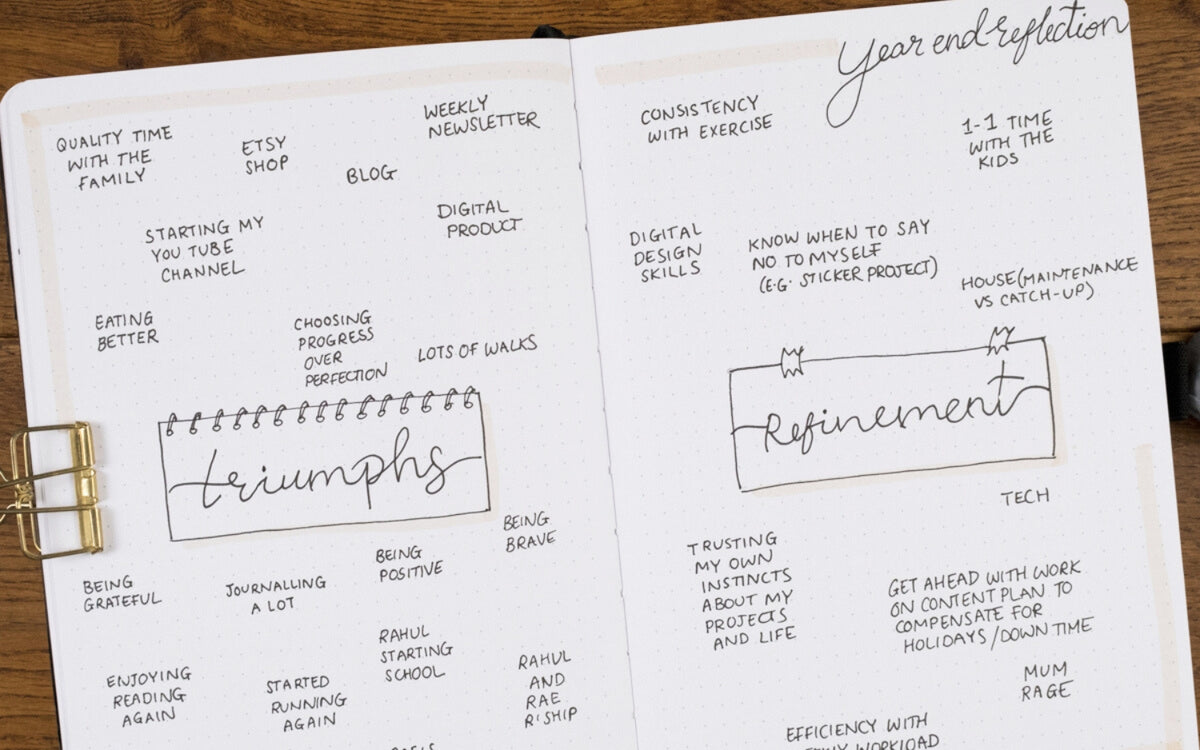 Year end reflection
QUALITY TIME
WITH THE
FAMILY
ETSY
SHOP
BLOG
WEEKLY
NEWSLETTER
STARTING MY
YOU TUBE
CHANNEL
DIGITAL
PRODUCT
EATING
BETTER
CHOOSING
PROGRESS
OVER
PERFECTION
LOTS OF WALKS
triumphs
BEING
GRATEFUL
JOURNALLING
A LOT
BEING
POSITIVE
BEING
BRAVE
ENJOYING
READING
AGAIN
STARTED
RUNNING
AGAIN
RAHUL
STARTING
SCHOOL
RAHUL
AND
RAE
R'SHIP
CONSISTENCY
WITH EXERCISE
1-1 TIME
WITH THE
KIDS
DIGITAL
DESIGN
SKILLS
KNOW WHEN TO SAY
NO TO MYSELF
(E.G. STICKER PROJECT)
HOUSE (MAINTENANCE
VS CATCH-UP)
Refinement
TECH
TRUSTING
MY OWN
INSTINCTS
ABOUT MY
PROJECTS
AND LIFE
GET AHEAD WITH WORK
ON CONTENT PLAN TO
COMPENSATE FOR
HOLIDAYS / DOWN TIME
MUM
RAGE
EFFICIENCY WITH
WORKLOAD